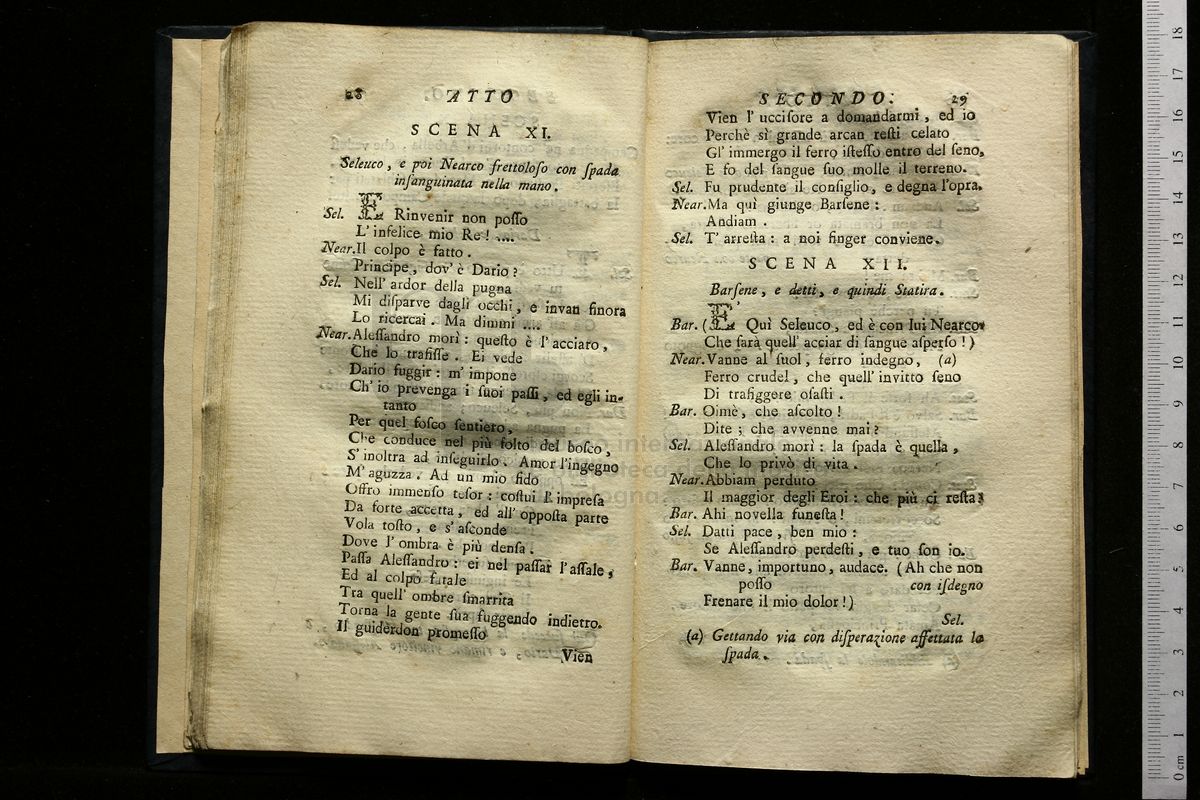 28 ATTO
SCENA XI.
Seleuco, e poi Nearco frettoloſo con ſpada
inſanguinata nella mano.
Sel. E Rinvenir non poſſo
L' infelice mio Re! ....
Near. Il colpo è fatto.
Principe, dov' è Dario?
Sel. Nell' ardor della pugna
Mi diſparve dagli occhi, e invan finora
Lo ricercai. Ma dimmi ....
Near. Aleſſandro morì: queſto è l' acciaro,
Che lo trafiſſe. Ei vede
Dario fuggir: m' impone
Ch' io prevenga i ſuoi paſſi, ed egli in-
tanto
Per quel foſco ſentiero,
Che conduce nel più folto del boſco,
S' inoltra ad inſeguirlo. Amor l'ingegno
M' aguzza. Ad un mio fido
Offro immenſo teſor: coſtui l' impreſa
Da forte accetta, ed all' oppoſta parte
Vola toſto, e s' aſconde
Dove l' ombra è più denſa.
Paſſa Aleſſandro: ei nel paſſar l' aſſale,
Ed al colpo fatale
Tra quell' ombre ſmarrita
Torna la gente ſua fuggendo indietro.
Il guiderdon promeſſo
Vien
SECONDO. 29
Vien l' ucciſore a domandarmi, ed io
Perchè sì grande arcan reſti celato
Gl' immergo il ferro iſteſſo entro del ſeno,
E fo del ſangue ſuo molle il terreno.
Sel. Fu prudente il conſiglio, e degna l'opra.
Near. Ma quì giunge Barſene:
Andiam.
Sel. T' arreſta: a noi finger conviene.
SCENA XII.
Barſene, e detti, e quindi Statira.
Bar. (E' Quì Seleuco, ed è con lui Nearco.
Che ſarà quell' acciar di ſangue aſperſo!)
Near. Vanne al ſuol, ferro indegno, (a)
Ferro crudel, che quell' invitto ſeno
Di trafiggere oſaſti.
Bar. Oimè, che aſcolto!
Dite; che avvenne mai?
Sel. Aleſſandro morì: la ſpada è quella,
Che lo privò di vita.
Near. Abbiam perduto
Il maggior degli Eroi: che più ci reſta?
Bar. Ahi novella funeſta!
Sel. Datti pace, ben mio:
Se Aleſſandro perdeſti, e tuo ſon io.
Bar. Vanne, importuno, audace. (Ah che non
poſſo con iſdegno
Frenare il mio dolor!)
Sel.
(a) Gettando via con diſperazione affettata la
ſpada.